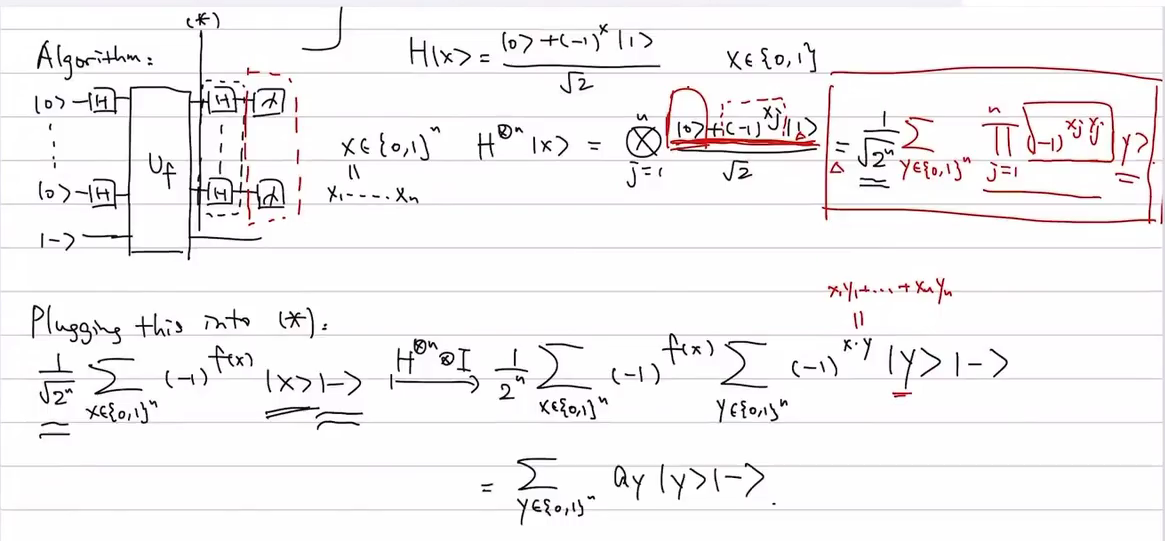 (*)
Algorithm:
|0> H H
|0> H H
U_f
|->
H|x> = (|0> + (-1)^x |1>) / √2    x∈{0,1}
x∈{0,1}^n
||
x₁----xₙ
H^{⊗n} |x> = ⊗_{j=1}^{n} (|0> + (-1)^{xj} |1>) / √2 = 1/√2^n ∑_{y∈{0,1}^n} ∏_{j=1}^{n} (-1)^{xj yj} |y>
Plugging this into (*):
x₁y₁+...+xₙyₙ
||
1/√2^n ∑_{x∈{0,1}^n} (-1)^{f(x)} |x>|-> H^{⊗n}⊗I ⟼ 1/2^n ∑_{x∈{0,1}^n} (-1)^{f(x)} ∑_{y∈{0,1}^n} (-1)^{x·y} |y>|->
= ∑_{y∈{0,1}^n} ay |y>|->.